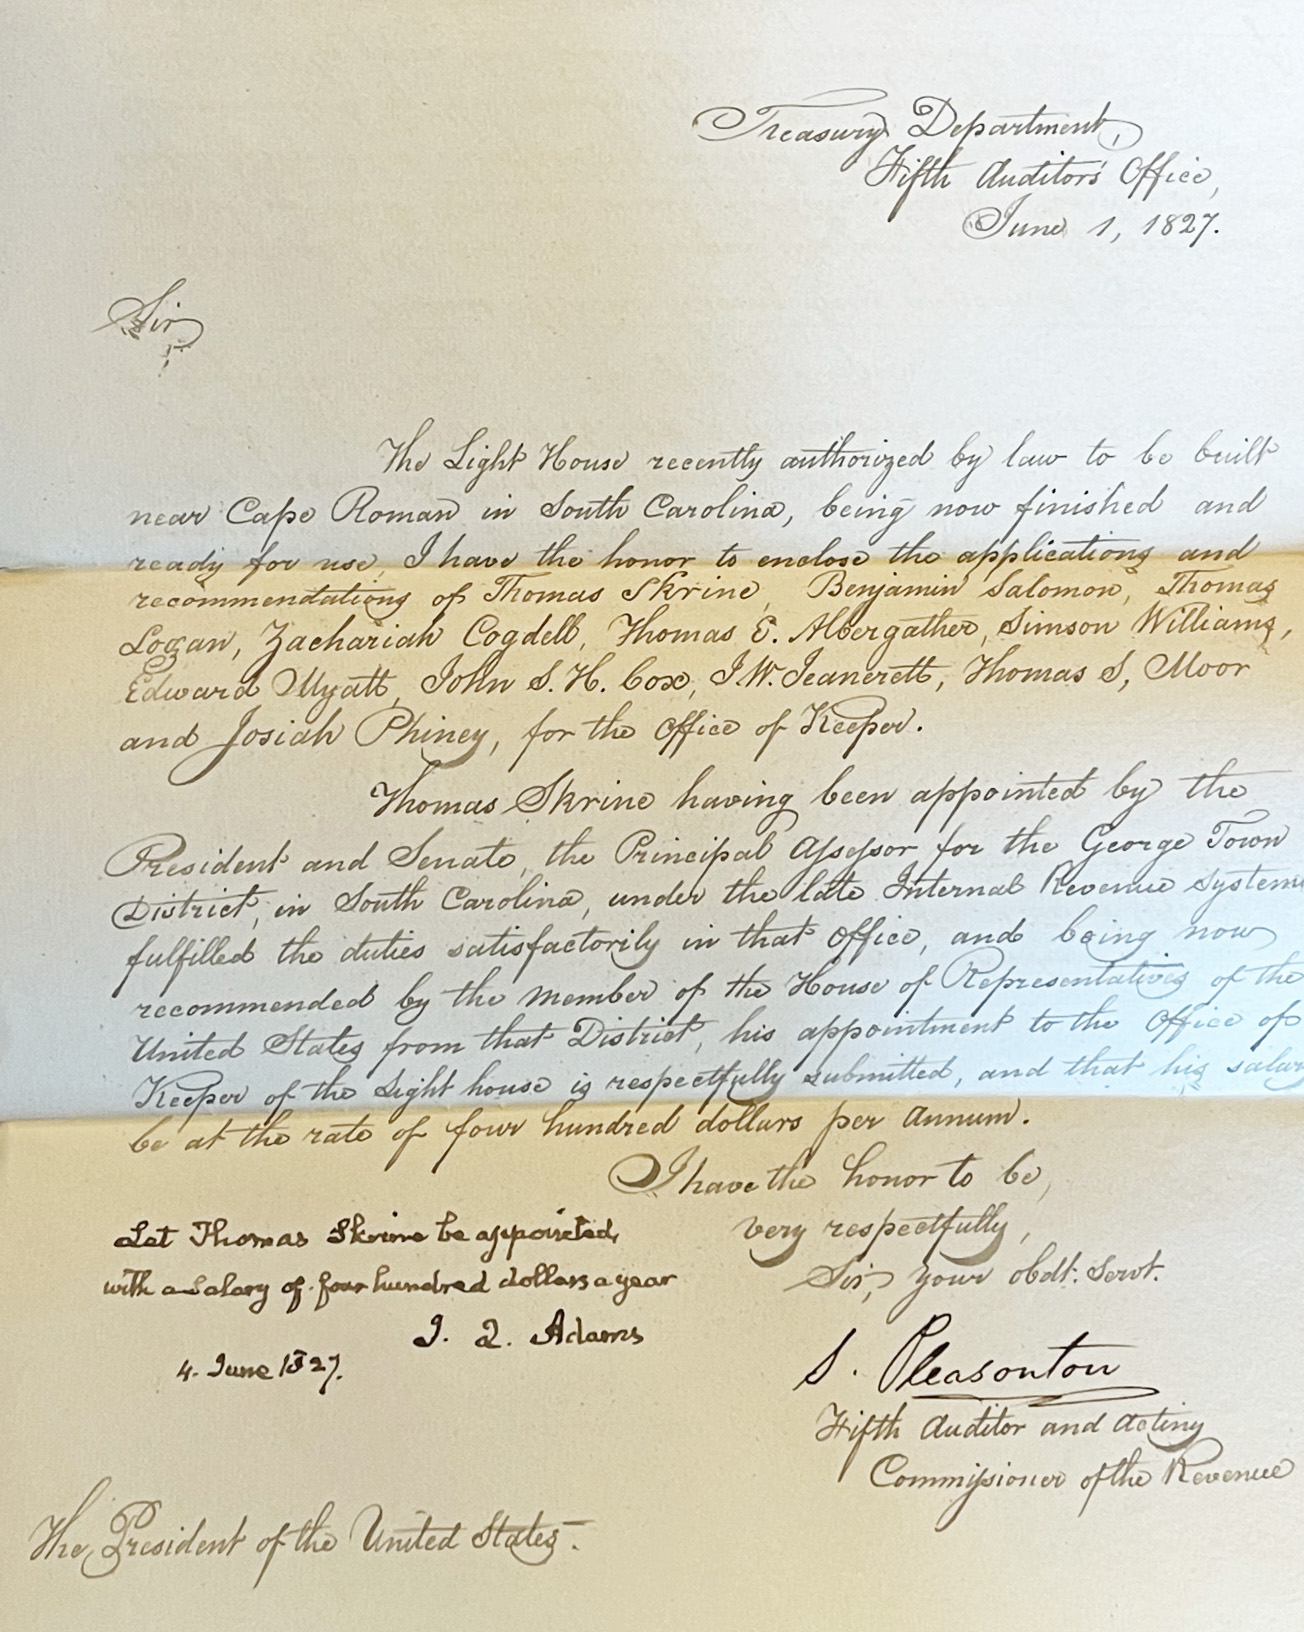 Treasury Department,
Fifth Auditors' Office,
June 1, 1827.
Sir,
The Light House recently authorized by law to be built
near Cape Roman in South Carolina, being now finished and
ready for use, I have the honor to enclose the applications and
recommendations of Thomas Skrine, Benjamin Salomon, Thomas
Logan, Zachariah Cogdell, Thomas E. Abergather, Simson Williams,
Edward Wyatt, John S. H. Cox, J. W. Jeanerett, Thomas S, Moor
and Josiah Phiney, for the Office of Keeper.
Thomas Skrine having been appointed by the
President and Senate, the Principal Assessor for the George Town
District, in South Carolina, under the late Internal Revenue System
fulfilled the duties satisfactorily in that Office, and being now
recommended by the Member of the House of Representatives of the
United States from that District, his appointment to the Office of
Keeper of the Light house is respectfully submitted, and that his salary
be at the rate of four hundred dollars per Annum.
I have the honor to be,
very respectfully,
Sir, your obdt: Servt.
S. Pleasonton
Fifth Auditor and Acting
Commissioner of the Revenue
Let Thomas Skrine be appointed,
with a salary of four hundred dollars a year
J. Q. Adams
4. June 1827.
The President of the United States.